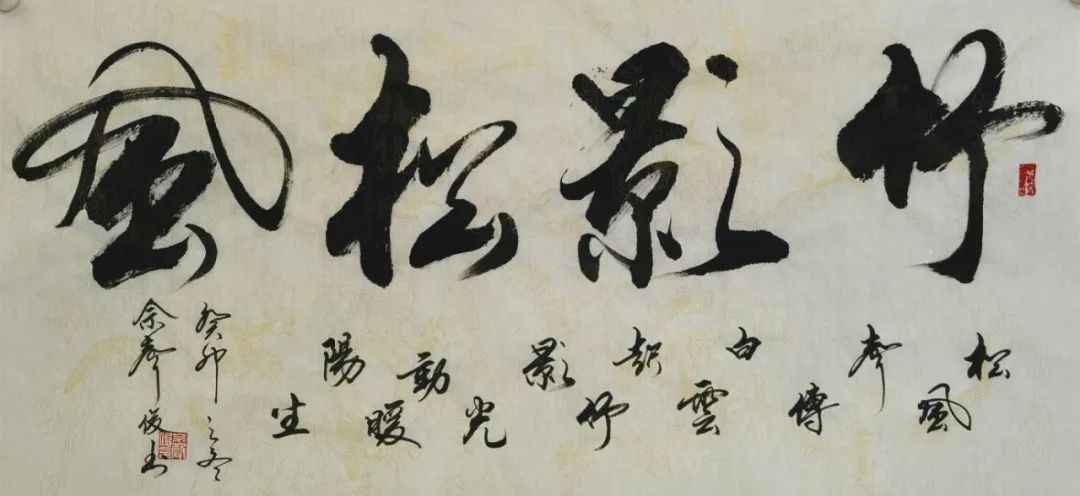 竹影松風
松風声傳白雲起竹影光動暖陽生
癸卯之冬
余声俊书